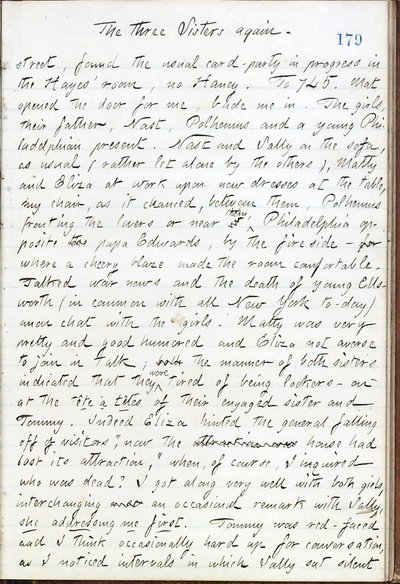 The three Sisters again.
179
street, found the usual card-party in progress in
the Hayes' room, no Haney. To 745. Mat
opened the door for me, bade me in. The girls,
their father, Nast, Polhemus and a young Phi-
ladelphian present. Nast and Sally on the sofa,
as usual (rather let alone by the others), Matty
and Eliza at work upon new dresses at the table,
my chair, as it chanced, between them, Polhemus
fronting the lovers or near them, Philadelphia op-
posite papa Edwards, by the fire side — for
where a cheery blaze made the room comfortable.
Talked war news and the death of young Ells-
worth (in common with all New York to-day)
anon chat with the girls. Matty was very
pretty and good humored and Eliza not averse
to join in talk; the manner of both sisters
indicated that they were tired of being lookers-on
at the tête à têtes of their engaged sister and
Tommy. Indeed Eliza hinted the general falling
off of visitors, "now the house had
lost its attraction," when, of course, I inquired
who was dead? I got along very well with both girls,
interchanging an occasional remark with Sally,
she addressing me first. Tommy was red-faced
and I think occasionally hard up for conversation,
as I noticed intervals in which Sally sat silent